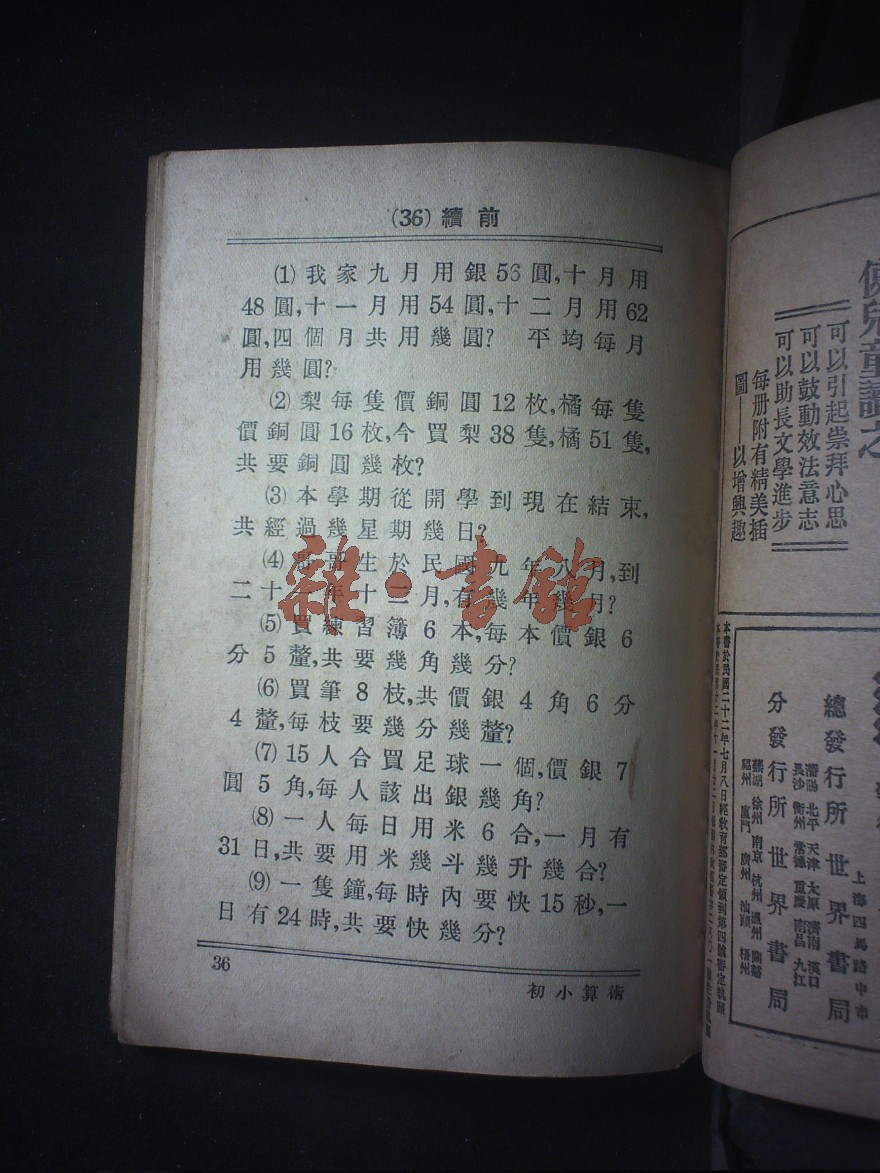 (36) 續前
(1) 我家九月用銀56圓,十月用
48圓,十一月用54圓,十二月用62
圓,四個月共用幾圓? 平均每月
用幾圓?
(2) 梨每隻價銅圓12枚,橘每隻
價銅圓16枚,今買梨38隻,橘51隻,
共要銅圓幾枚?
(3) 本學期從開學到現在結束,
共經過幾星期幾日?
(4) 哥哥生於民國九年八月,到
二十一年十二月,有幾年幾月?
(5) 買練習簿6本,每本價銀6
分5釐,共要幾角幾分?
(6) 買筆8枝,共價銀4角6分
4釐,每枝要幾分幾釐?
(7) 15人合買足球一個,價銀7
圓5角,每人該出銀幾角?
(8) 一人每日用米6合,一月有
31日,共要用米幾斗幾升幾合?
(9) 一隻鐘,每時內要快15秒,一
日有24時,共要快幾分?
36
初小算術
雜·書館
兒童讀之
可以引起崇拜心思
可以鼓動效法意志
可以助長文學進步
每册附有精美插
圖——以增興趣
上海四馬路中市
總發行所 世界書局
瀋陽 北平 天津 太原 濟南 漢口
長沙 衡州 常德 重慶 南昌 九江
分發行所 世界書局
蕪湖 徐州 南京 杭州 溫州 蘭谿
福州 廈門 廣州 汕頭 梧州
本書於民國二十二年七月八日經教育部審定領到第四號審定執照